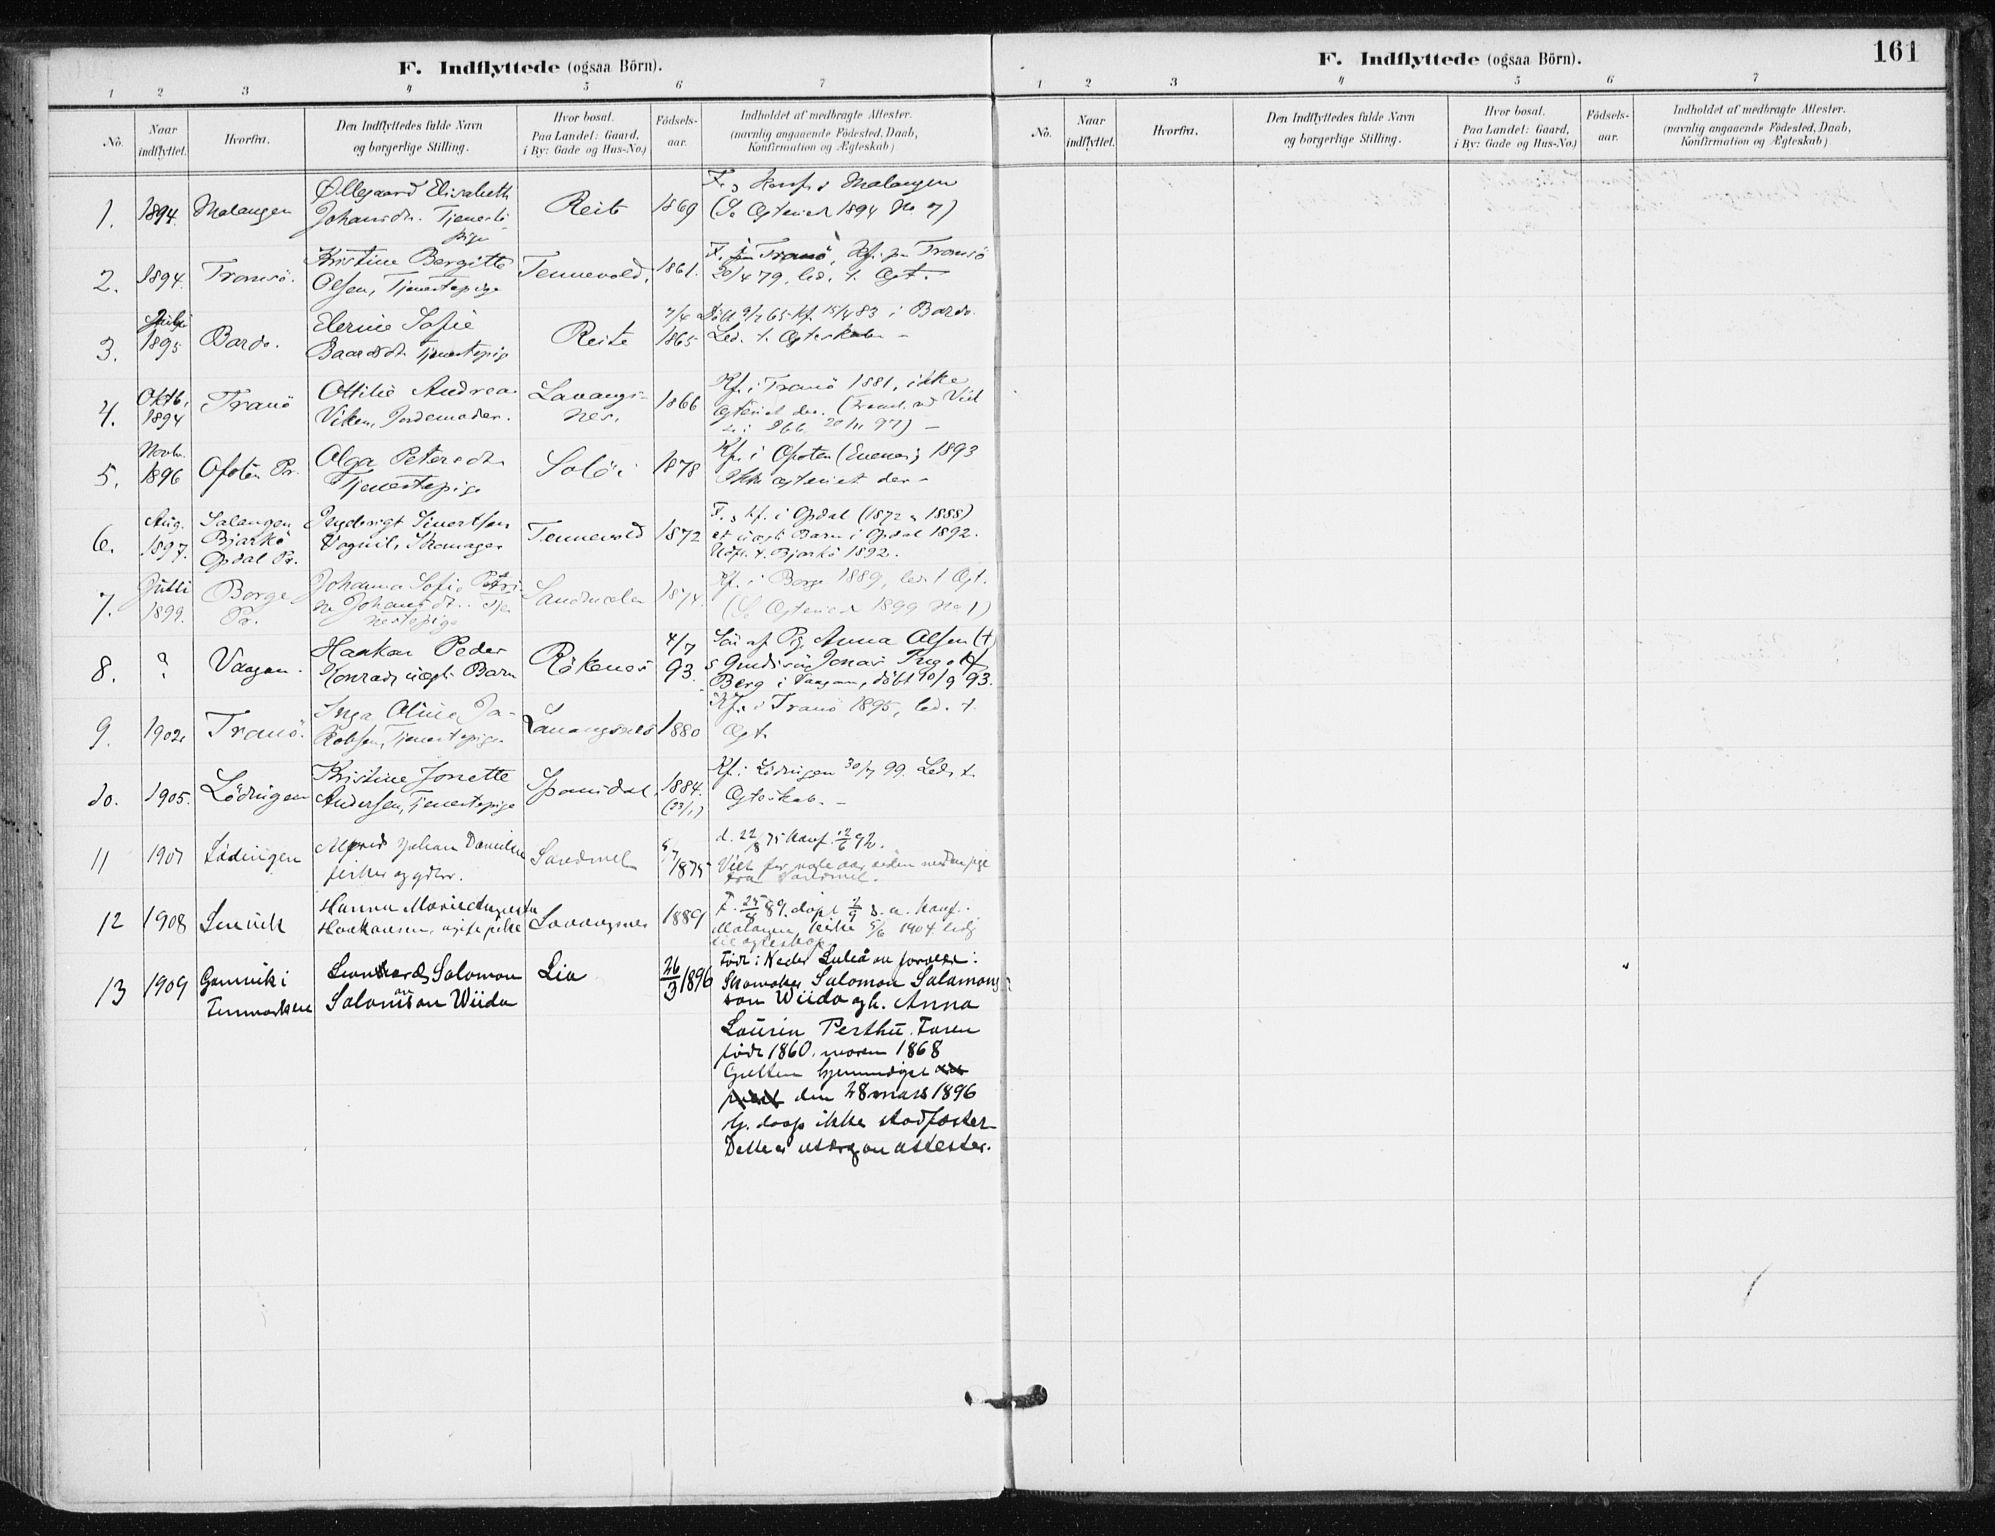 161
F. Indflyttede (ogsaa Börn).
1 2 3 4 5 6 7
No.
Naar indflyttet.
Hvorfra.
Den Indflyttedes fulde Navn
og borgerlige Stilling.
Hvor bosat.
Paa Landet: Gaard,
i By: Gade og Hus-No.)
Födsels-
aar.
Indholdet af medbragte Attester.
(navnlig angaaende Födested, Daab,
Konfirmation og Ægteskab)
1. 1894. Malangen
Øllegaard Elisabeth
Johansdtr. Tjeneste
pige
Reite 1869
F. & konf. i Malangen
(Se Ægteviede 1894 No 7)
2. 1894. Tromsö.
Kristine Bergitte
Olsen, Tjenestepige
Tennevold, 1861.
F. Tranö, Kf. i Tromsö
20/4 79, led. t. Ægt.
3. 1895 Bardo.
Elerine Sofie
Baardsdtr. Tjenestepige
Reite 1865
Döbt 9/7 65 Kf. 15/4 83 i Bardo.
Led. t. Ægteskab -
4. Oktb. 1894 Tranö
Ottilie Andrea
Viken, Jordemoder.
Lavangs-
nes. 1866
Kf. i Tranö 1881, ikke
ægteviet der.
5. Novbr. 1896 Ofoten Pr.
Olga Petersdtr
Tjenestepige
Solöi 1878
Kf. i Ofoten (Evenes) 1893
Ikke ægteviet der -
6. Aug. 1897. Salangen
Bjarkö
Opdal Pr.
Ingebrigt Sivertsen
Vognil, Skomager
Tennevold 1872
F. & kf. i Opdal (1872 & 1888)
et uægte Barn i Opdal 1892.
Udfl. t. Bjarkö 1892.
7. Julli 1899. Borge
Pr.
Johanna Sofie Petri-
ne Johansdtr. Tje
nestepige
Sandmelen 1874.
Kf. i Borge 1889, led. t. Ægt.
(Se Ægteviede 1899 No 1)
8. ? Vaagan.
Haakon Peder
Konrad, uægte Barn
Rökenes 4/7 93.
Sön af Pg. Anna Olsen (†)
& Jonas Ingolf
Berg i Vaagan, döbt 10/9 93.
9. 1902 Tranö.
Inga Oline Ja-
kobsen, Tjenestepige
Lavangsnes 1880
Kf. i Tranö 1895, led. t.
Ægt.
10. 1905. Lödingen
Kristine Jonette
Andersen, Tjenestepige
Spansdal. 1884.
(23/1)
Kf. i Lödingen 30/7 99. Led. t.
Ægteskab. -
11 1907 Lödingen
Alfred Johan Danielsen
fisker og gdbr.
Sandmel 1875
d. 22/8 75 konf. 12/6 92.
Viet for nogle aar siden med en pige
fra Sandmel.
12 1908
Hanna Marie
Haakonsen, ugift pike
Lavangsnes 1889
F. 25/8 89, döpt
kirke 5/6 1904. ledig
til egteskap
13 1909 Gamvik i
Finmarken
Salomon
Salomonson Wiida
Lia 26/3 1896
Födt i Neder Luleå av foreldre:
Skomaker Salomon Salamons-
son Wiida og h. Anna
Lovisa Perthu. Faren
födt 1860. moren 1868
Gutten hjemmedöpt
den 28 mars 1896
Hj. daap ikke stadfæstet
Dette er utdrag av attester.
F. Indflyttede (ogsaa Börn).
1 2 3 4 5 6 7
No.
Naar indflyttet.
Hvorfra.
Den Indflyttedes fulde Navn
og borgerlige Stilling.
Hvor bosat.
Paa Landet: Gaard,
i By: Gade og Hus-No.)
Födsels-
aar.
Indholdet af medbragte Attester.
(navnlig angaaende Födested, Daab,
Konfirmation og Ægteskab)